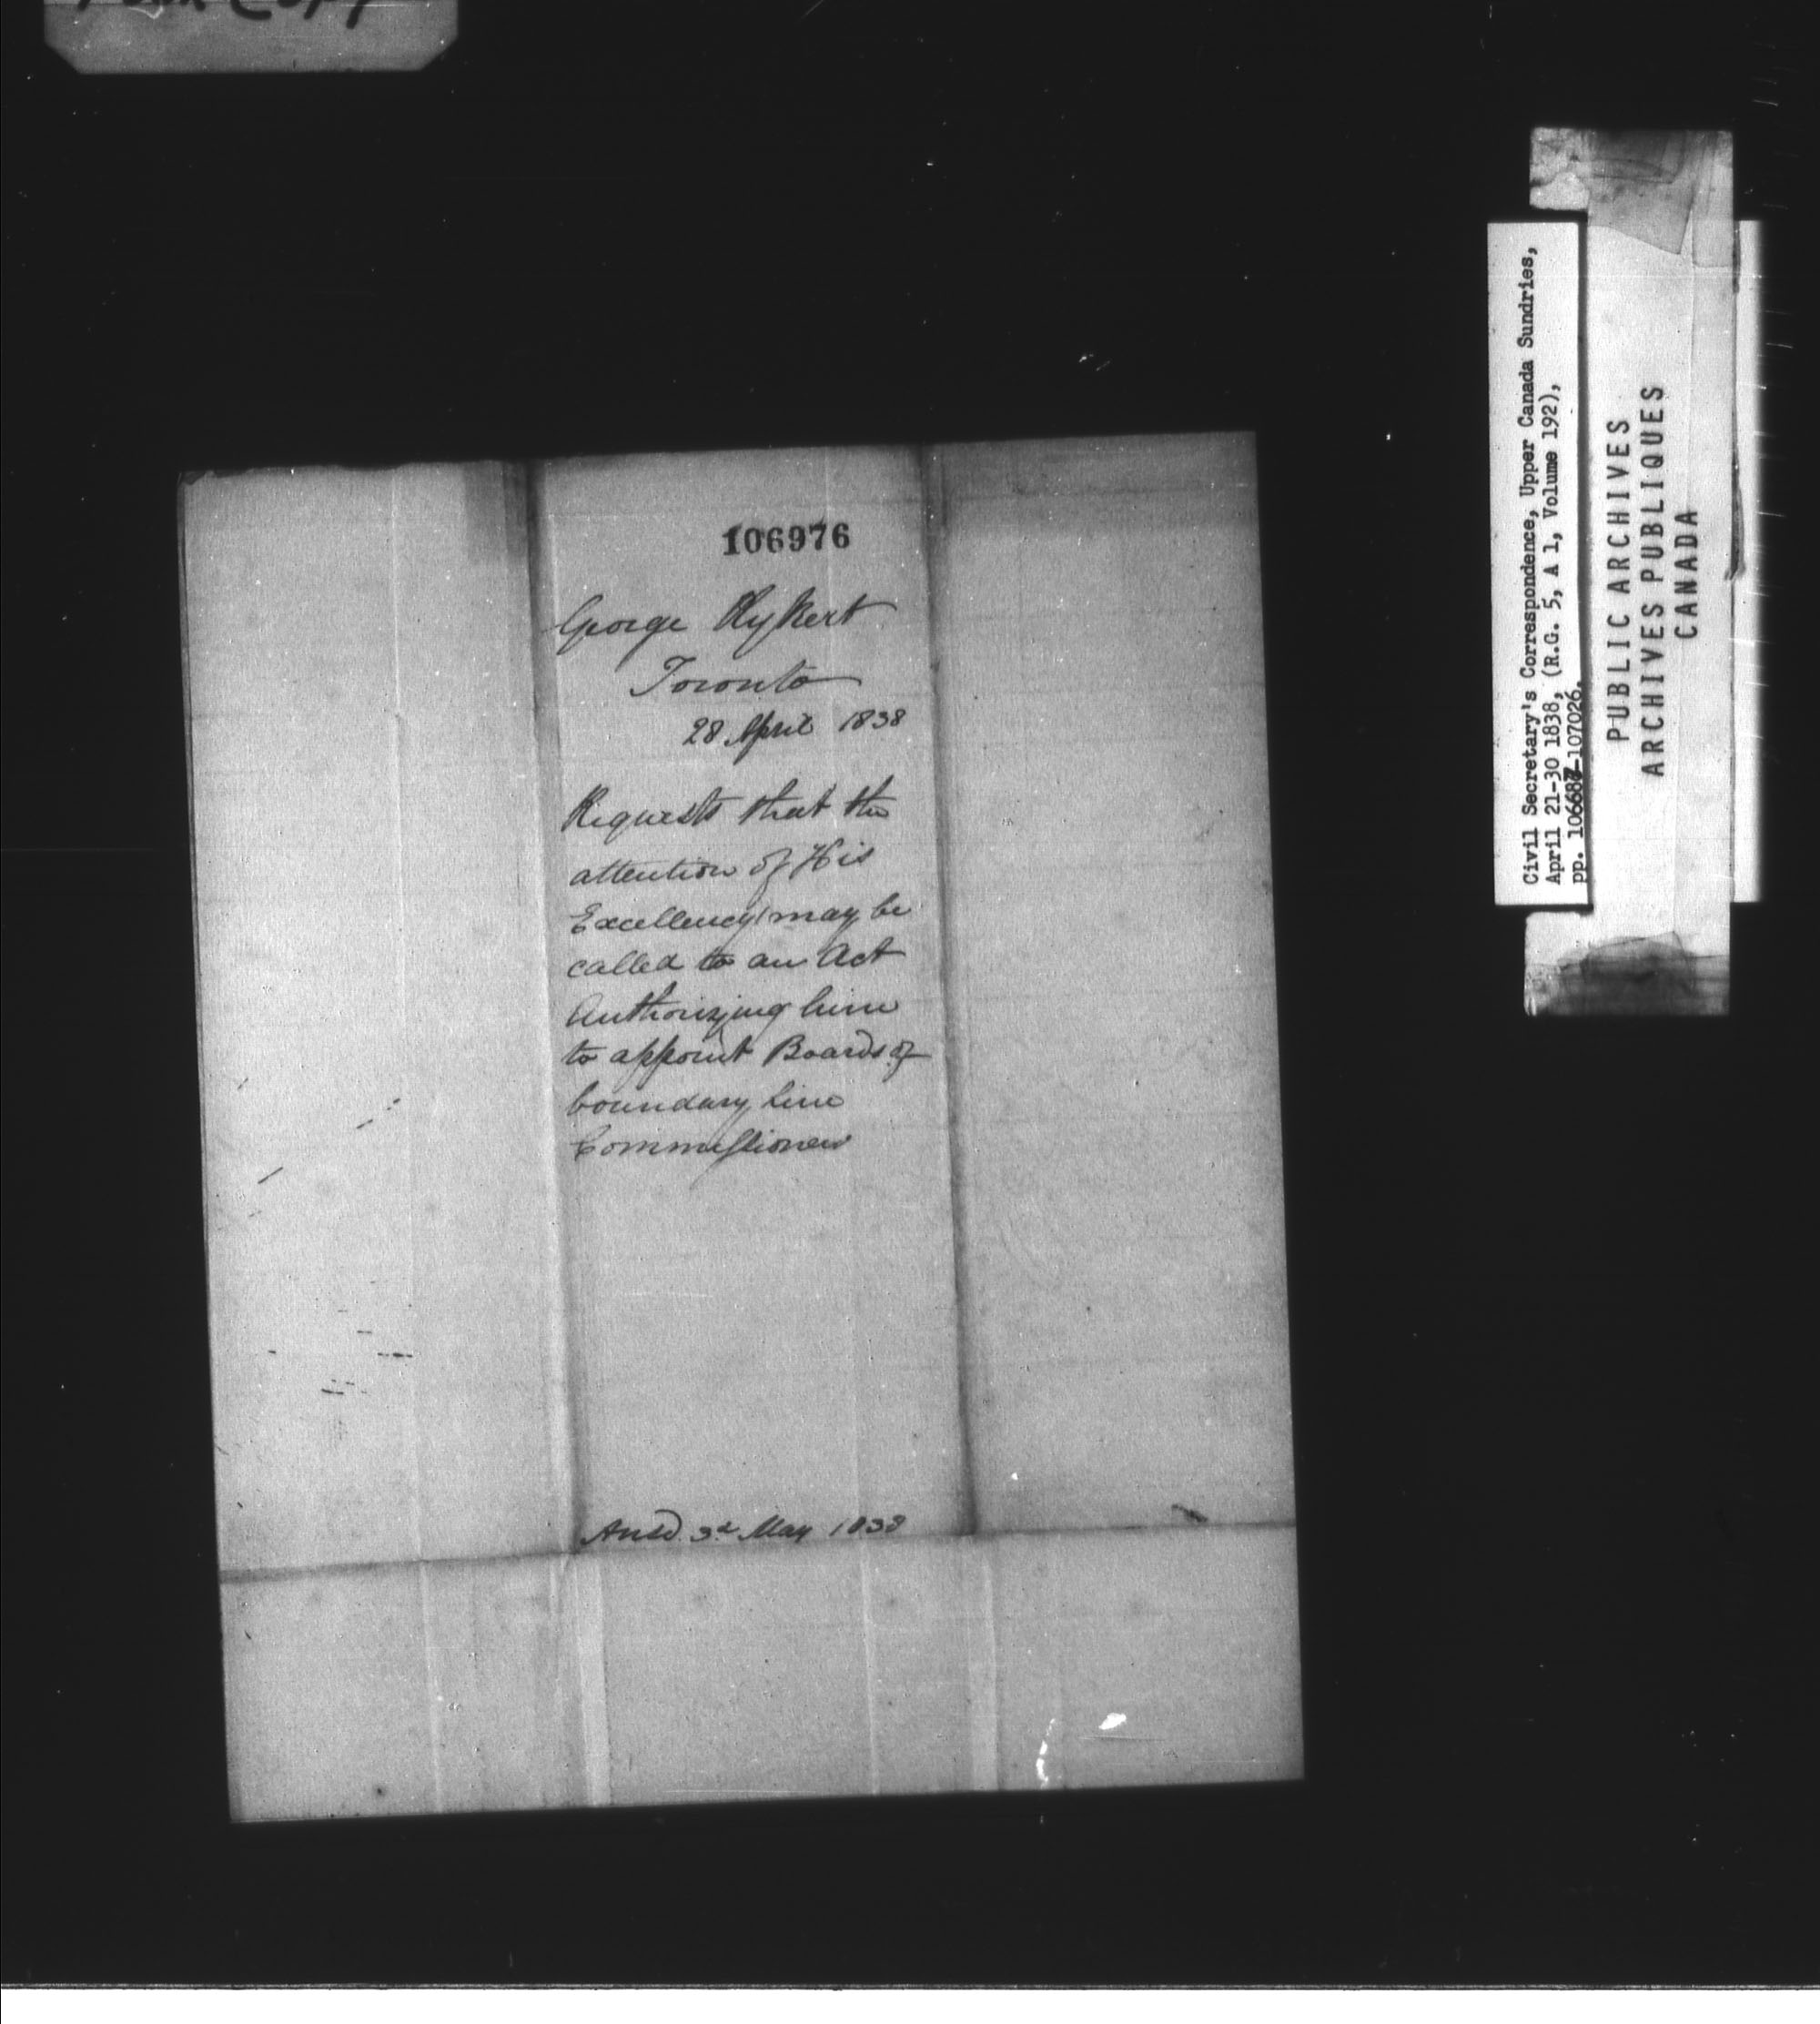 POOR COPY
106976
George Rykert
Toronto
28 April 1838
Requests that the
attention of His
Excellency may be
called to an Act
Authorizing him
to appoint Boards of
boundary line
Commissioners
Ansd. 3d May 1838
Civil Secretary's Correspondence, Upper Canada Sundries,
April 21-30 1838, (R.G. 5, A 1, Volume 192),
pp. 106687-107026.
PUBLIC ARCHIVES
ARCHIVES PUBLIQUES
CANADA